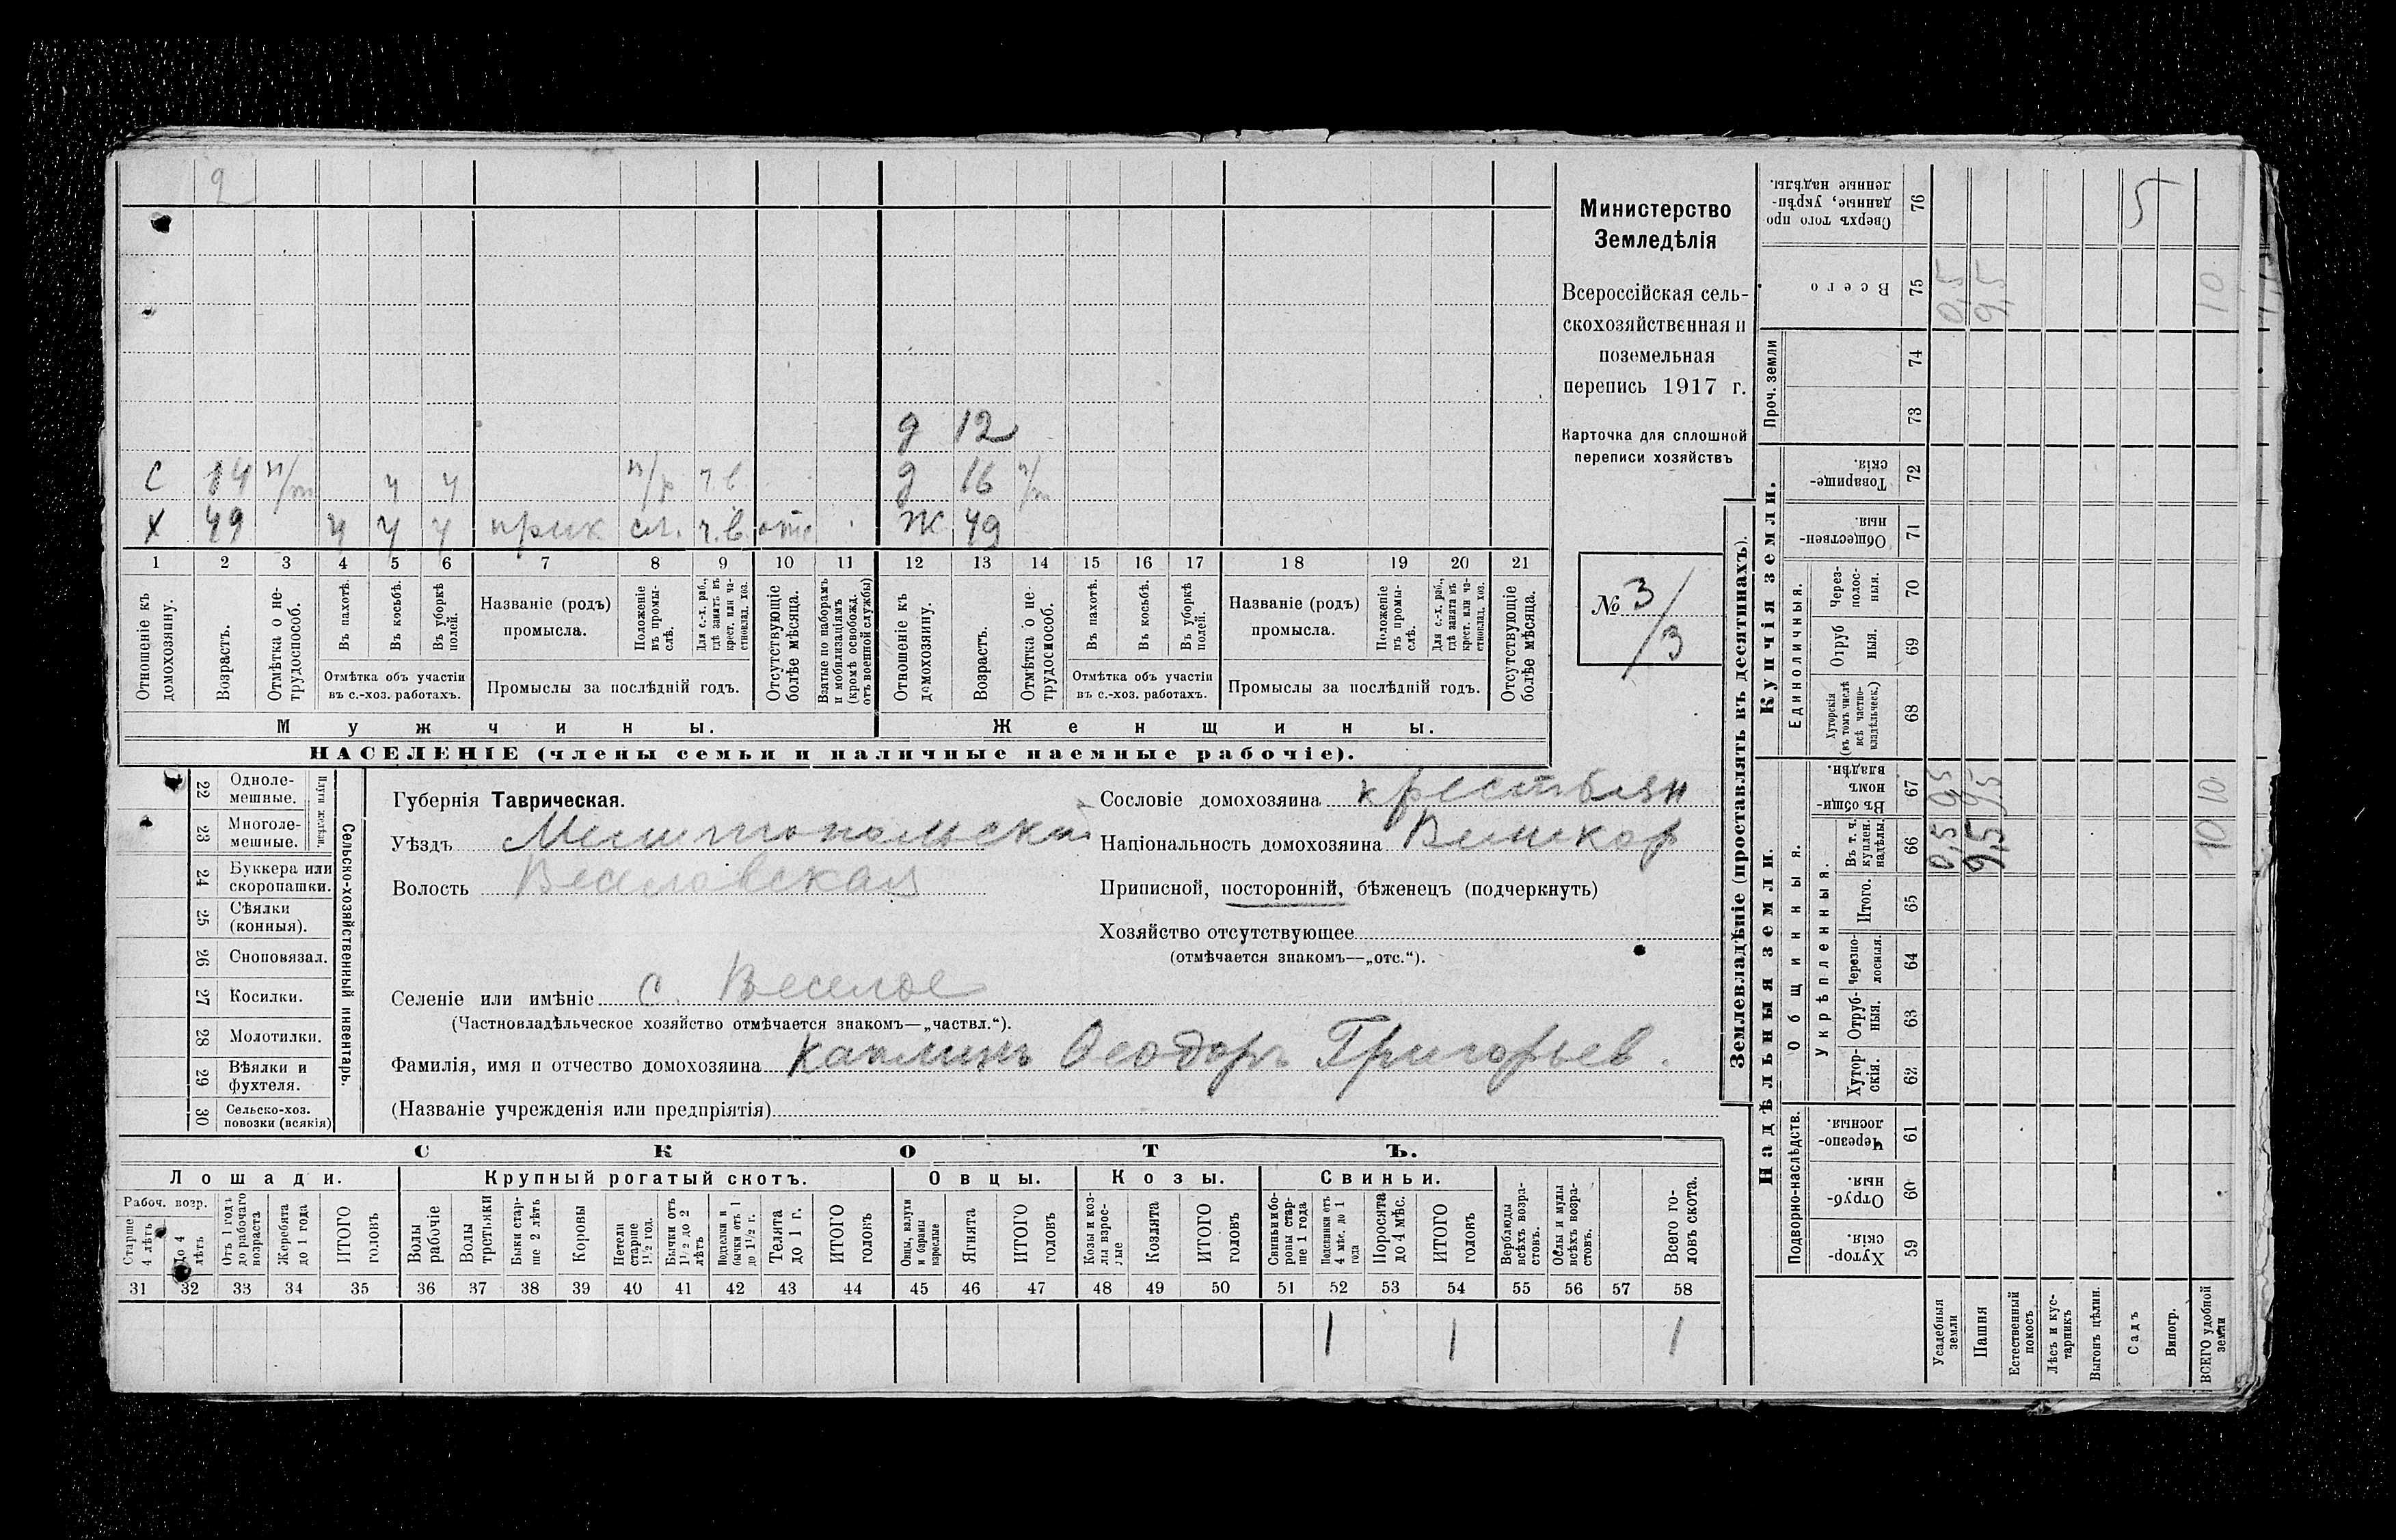 2
д 12
С 14 н/т ч ч н/р ч в д 16 н/т
Х 49 ч ч ч прик сл. ч.в. отс Ж 49
1 2 3 4 5 6 7 8 9 10 11 12 13 14 15 16 17 18 19 20 21
Отношеніе къ домохозяину.
Возрастъ.
Отмѣтка о не-
трудоспособ.
Въ пахотѣ.
Въ косьбѣ.
Въ уборкѣ
полей.
Отмѣтка объ участіи
въ с.-хоз. работахъ.
Названіе (родъ)
промысла.
Положеніе
въ промы-
слѣ.
Для с.-х. раб.,
гдѣ занятъ въ
крест. или ча-
стновлад. хоз.
Промыслы за послѣдній годъ.
Отсутствующіе
болѣе мѣсяца.
Взятые по наборамъ
и мобилизаціямъ
(кромѣ освобожд.
отъ военной службы)
Отношеніе къ
домохозяину.
Возрастъ.
Отмѣтка о не-
трудоспособ.
Въ пахотѣ.
Въ косьбѣ.
Въ уборкѣ
полей.
Отмѣтка объ участіи
въ с.-хоз. работахъ.
Названіе (родъ)
промысла.
Положеніе
въ промы-
слѣ.
Для с.-х. раб.,
гдѣ занята въ
крест. или ча-
стновлад. хоз.
Промыслы за послѣдній годъ.
Отсутствующіе
болѣе мѣсяца.
Мужчины.
Женщины.
НАСЕЛЕНІЕ (члены семьи и наличные наемные рабочіе).
Министерство
Земледѣлія
Всероссійская сель-
скохозяйственная и
поземельная
перепись 1917 г.
Карточка для сплошной
переписи хозяйствъ
№ 3/3
22 Одноле-
мешные.
23 Многоле-
мешные.
Плуги желѣзн.
24 Буккера или
скоропашки.
25 Сѣялки
(конныя).
26 Сноповязал.
27 Косилки.
28 Молотилки.
29 Вѣялки и
фухтеля.
30 Сельско-хоз.
повозки (всякія)
Сельско-хозяйственный инвентарь.
Губернія Таврическая.
Уѣздъ Мелитопольскій
Волость Веселовская
Сословіе домохозяина крестьян
Національность домохозяина Великор
Приписной, посторонній, бѣженецъ (подчеркнуть)
Хозяйство отсутствующее
(отмѣчается знакомъ—„отс.“).
Селеніе или имѣніе с. Веселое
(Частновладѣльческое хозяйство отмѣчается знакомъ—„частвл.“).
Фамилія, имя и отчество домохозяина Каплинъ Ѳеодоръ Григорьев.
(Названіе учрежденія или предпріятія)
СКОТЪ.
Лошади. Крупный рогатый скотъ. Овцы. Козы. Свиньи.
Рабоч. возр.
Старше
4 лѣтъ
До 4
лѣтъ
Отъ 1 года
до рабочаго
возраста
Жеребята
до 1 года
ИТОГО
головъ
Волы
рабочіе
Волы
третьяки
Быки стар-
ше 2 лѣтъ
Коровы
Нетели
старше
1½ год.
Бычки отъ
1½ до 2
лѣтъ
Подтелки и
бычки отъ 1
до 1½ г.
Телята
до 1 г.
ИТОГО
головъ
Овцы, валухи
и бараны
взрослые
Ягнята
ИТОГО
головъ
Козы и коз-
лы взрос-
лые
Козлята
ИТОГО
головъ
Свиньи и бо-
ровы стар-
ше 1 года
Подсвинки отъ
4 мѣс. до 1
года
Поросята
до 4 мѣс.
ИТОГО
головъ
Верблюды
всѣхъ возра-
стовъ.
Ослы и мулы
всѣхъ возра-
стовъ.
Всего го-
ловъ скота.
31 32 33 34 35 36 37 38 39 40 41 42 43 44 45 46 47 48 49 50 51 52 53 54 55 56 57 58
1 1 1
Землевладѣніе (проставлять въ десятинахъ).
Купчія земли.
Надѣльныя земли.
Проч. земли
Единоличныя.
Общинныя.
Укрѣпленныя.
Подворно-наслѣдств.
Сверхъ того про
данные, укрѣп-
ленные надѣлы.
76 5
Всего
75 0,5 9,5 10
74
73
Товарище-
скія.
72
Обществен-
ныя.
71
Через-
полос-
ныя.
70
Отруб
ныя.
69
Хуторскія
(въ томъ числѣ
всѣ частно-
владѣльческ.)
68
Въ общи-
номъ
владѣн.
67 0,5 9,5 10
Въ т. ч.
куплен.
надѣлы.
66 0,5 9,5 10
Итого.
65
Черезпо-
лосныя.
64
Отруб-
ныя.
63
Хутор-
скія.
62
Черезпо-
лосныя.
61
Отруб-
ныя.
60
Хутор-
скія.
59
Усадебныя
земли
Пашня
Естественный
покосъ
Лѣсъ и кус-
тарникъ
Выгонъ цѣлин.
Садъ
Виногр.
ВСЕГО удобной
земли